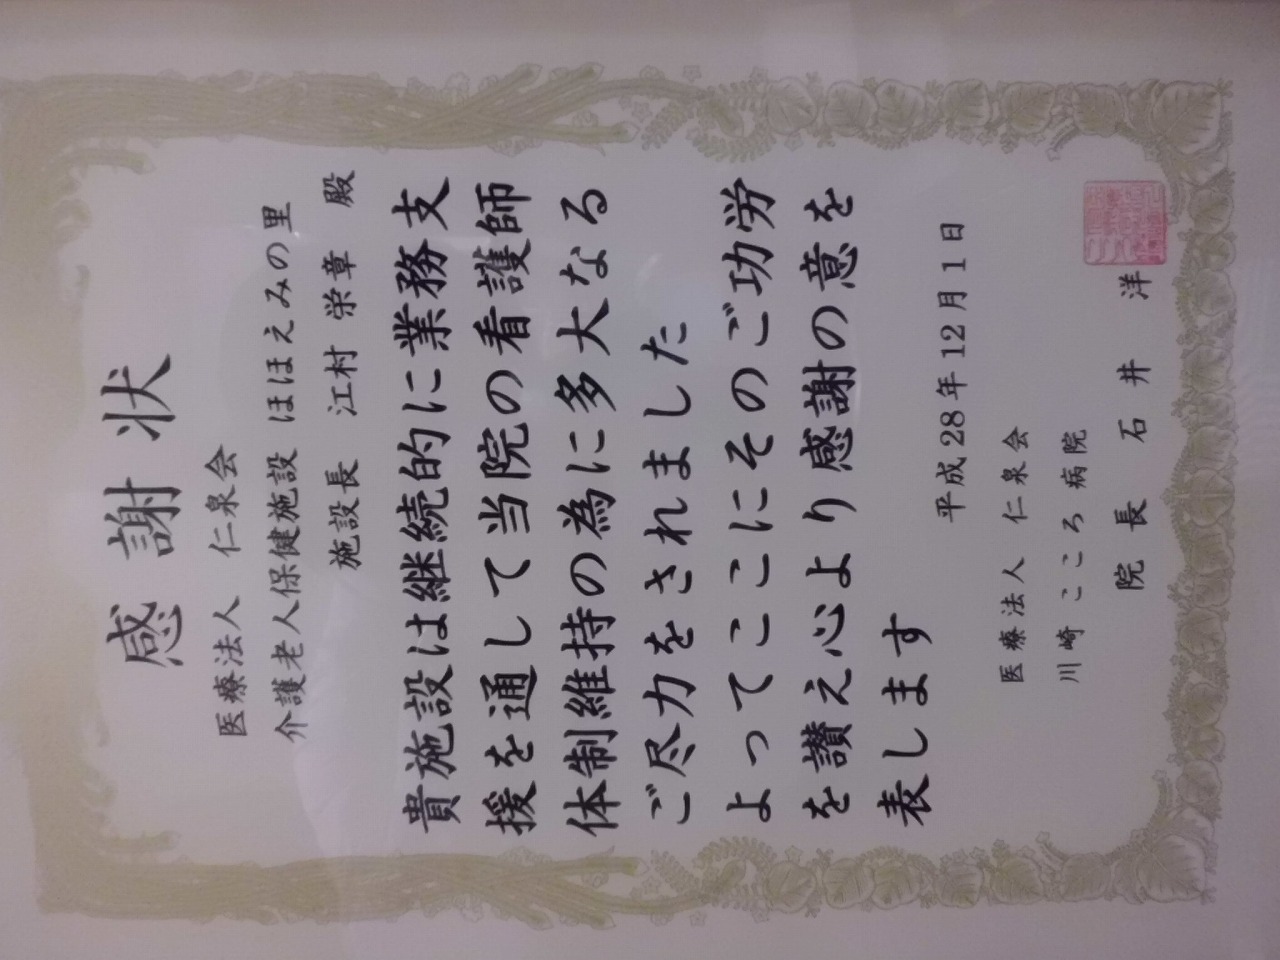 感謝状
医療法人 仁泉会
介護老人保健施設 ほほえみの里
施設長 江村 栄章 殿
貴施設は継続的に業務支
援を通して当院の看護師
体制維持の為に多大なる
ご尽力をされました
よってここにそのご功労
を讃え心より感謝の意を
表します
平成28年12月1日
医療法人 仁泉会
川崎こころ病院
院長 石井 洋